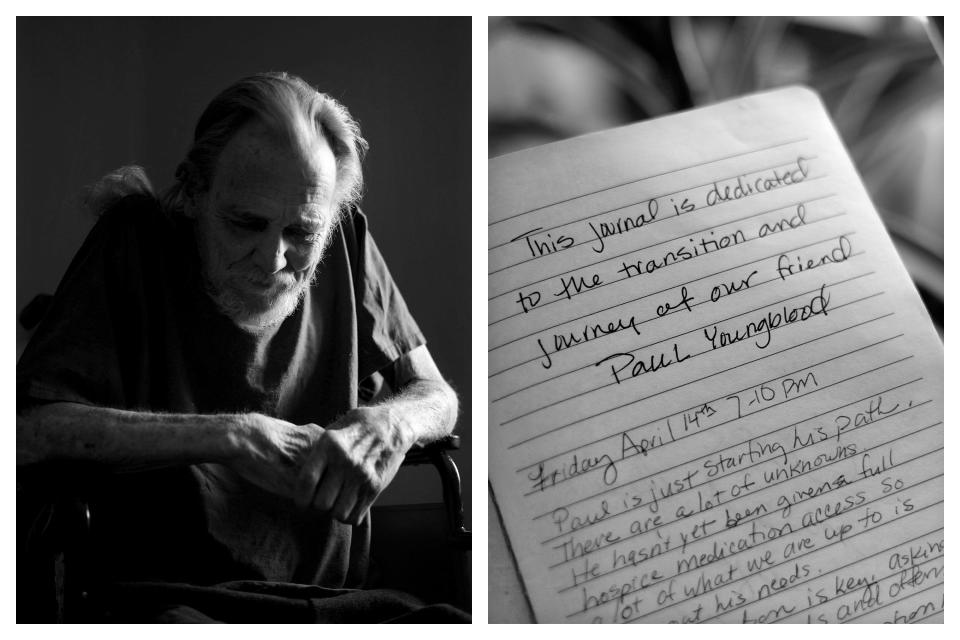 This journal is dedicated
to the transition and
journey of our friend
Paul Youngblood
Friday April 14th 7-10 pm
Paul is just starting his path.
There are a lot of unknowns.
He hasn't yet been given a full
hospice medication access so
a lot of what we are up to is
out his needs.
is key, asking
and often